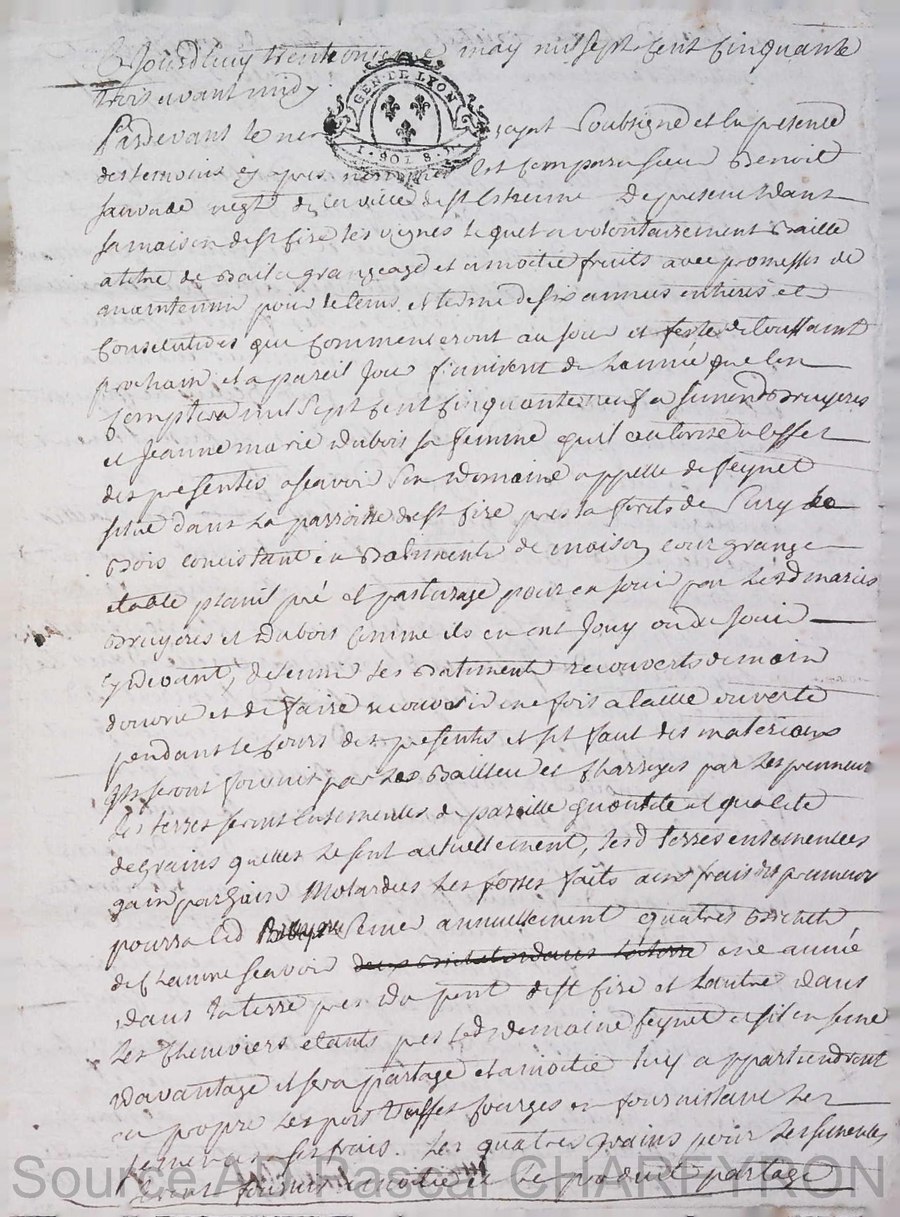 Ce Jourdhuy trente unieme may mil sept cent cinquante
trois avant midy
GEN. DE LYON
Pardevant le no soubsigné et en presence
des temoins cy apres nommes est comparu sieur Benoit
negt de la ville de st Estienne De present dans
sa maison de st Cire les vignes lequel a volontairement Baillé
a titre de Bail a grangeage et a moitie fruits avec promesse de
maintenir pour le tems et terme de six années entieres et
consecutives qui commenceront au jour et feste de toussaint
prochain et a pareil jour finiront de l'année que l'on
comptera mil sept cent cinquante neuf a Bruyeres
et Jeanne marie Dubois sa femme qu'il autorise a l'effet
des presentes a scavoir son Domaine appelle de feynet
situé dans la parroisse de st Cire pres la forets de Sury le
Bois concistant en Batiments de maison cour grange
etable plani pré et pasturage pour en jouir par lesd maries
Bruyeres et Dubois comme ils en ont Jouy ou du Jouir
cy devant, de tenir les Batiments recouverts de main
douvrie et de faire recouvrir une fois a taille ouverte
pendant le cours des presentes et sil faut des materiaux
ils seront fournis par le Bailleur et charroyes par les preneurs
les terres seront ensemencées de pareille quantité et qualité
de grains quelles le sont actuellement, lesd terres ensemencées
les fosses faits aux frais des preneurs
pourra led semer annuellement quatres Bichets
de chanvre scavoir une année
dans la terre pres du pont de st Cire et l'autre dans
les cheneviers etants pres led domaine feynet et sil en seme
davantage il sera partagé a moitie luy appartiendront
en propre les courges en fournissant les
a ses frais. Les quatres grains pour les semences
seront fournis a moitie et le produit partagé
Source AD Pascal CHAREYRON